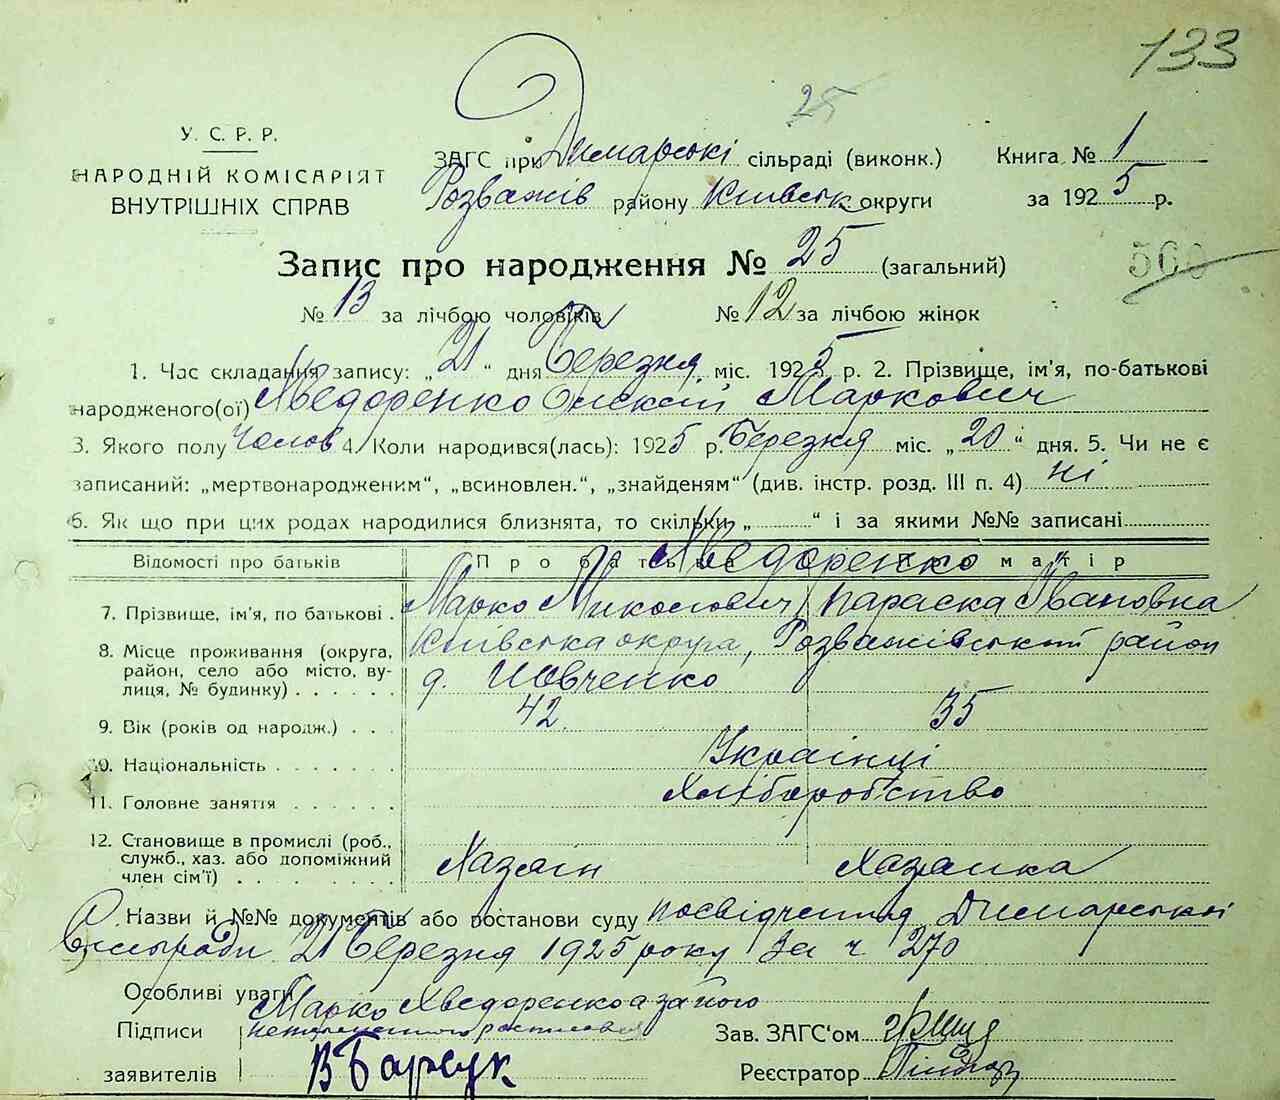 133
25
У. С. Р. Р.
НАРОДНІЙ КОМІСАРІЯТ
ВНУТРІШНІХ СПРАВ
ЗАГС при Димарські сільраді (виконк.)
Розважів району Київськ округи
Книга № 1
за 1925 р.
Запис про народження № 25 (загальний)
560
№ 13 за лічбою чоловіків № 12 за лічбою жінок
1. Час складання запису: „21“ дня Березня міс. 1925 р. 2. Прізвище, ім'я, по-батькові
народженого(ої) Хведоренко Олексій Маркович
3. Якого полу Чолов 4. Коли народився(лась): 1925 р. Березня міс. „20“ дня. 5. Чи не є
записаний: „мертвонародженим“, „всиновлен.“, „знайденям“ (див. інстр. розд. III п. 4) ні
6. Як що при цих родах народилися близнята, то скільки „ “ і за якими №№ записані
Відомості про батьків Про батька Про матір
Хведоренко
7. Прізвище, ім'я, по батькові . Марко Миколович Параска Івановна
8. Місце проживання (округа, Київська округа, Розважівський район
район, село або місто, ву-
лиця, № будинку) . . . . . . д. Шовченко
9. Вік (років од народж.) . . . 42 35
10. Національність . . . . . . . Українці
11. Головне заняття . . . . . . Хліборобство
12. Становище в промислі (роб.,
служб., хаз. або допоміжний Хазяін Хазяйка
член сім'ї) . . . . . . . . .
Назви й №№ документів або постанови суду посвідчення Димарської
Сільради 21 Березня 1925 року За ч 270
Особливі уваги
Марко Хведоренко а за його
Підписи неграмотного росписався
заявителів В Барсук
Зав. ЗАГС'ом
Реєстратор